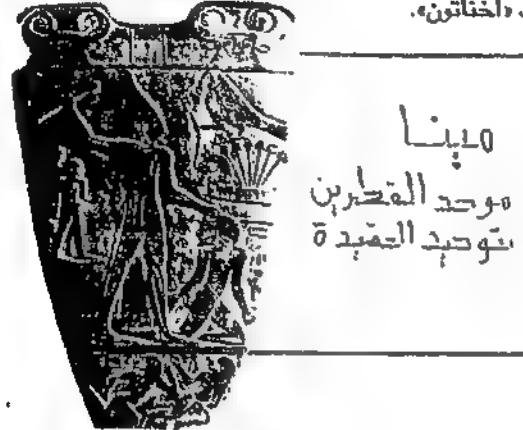 «اخناتون».
مينا
موحد القطرين
بتوحيد العقيدة